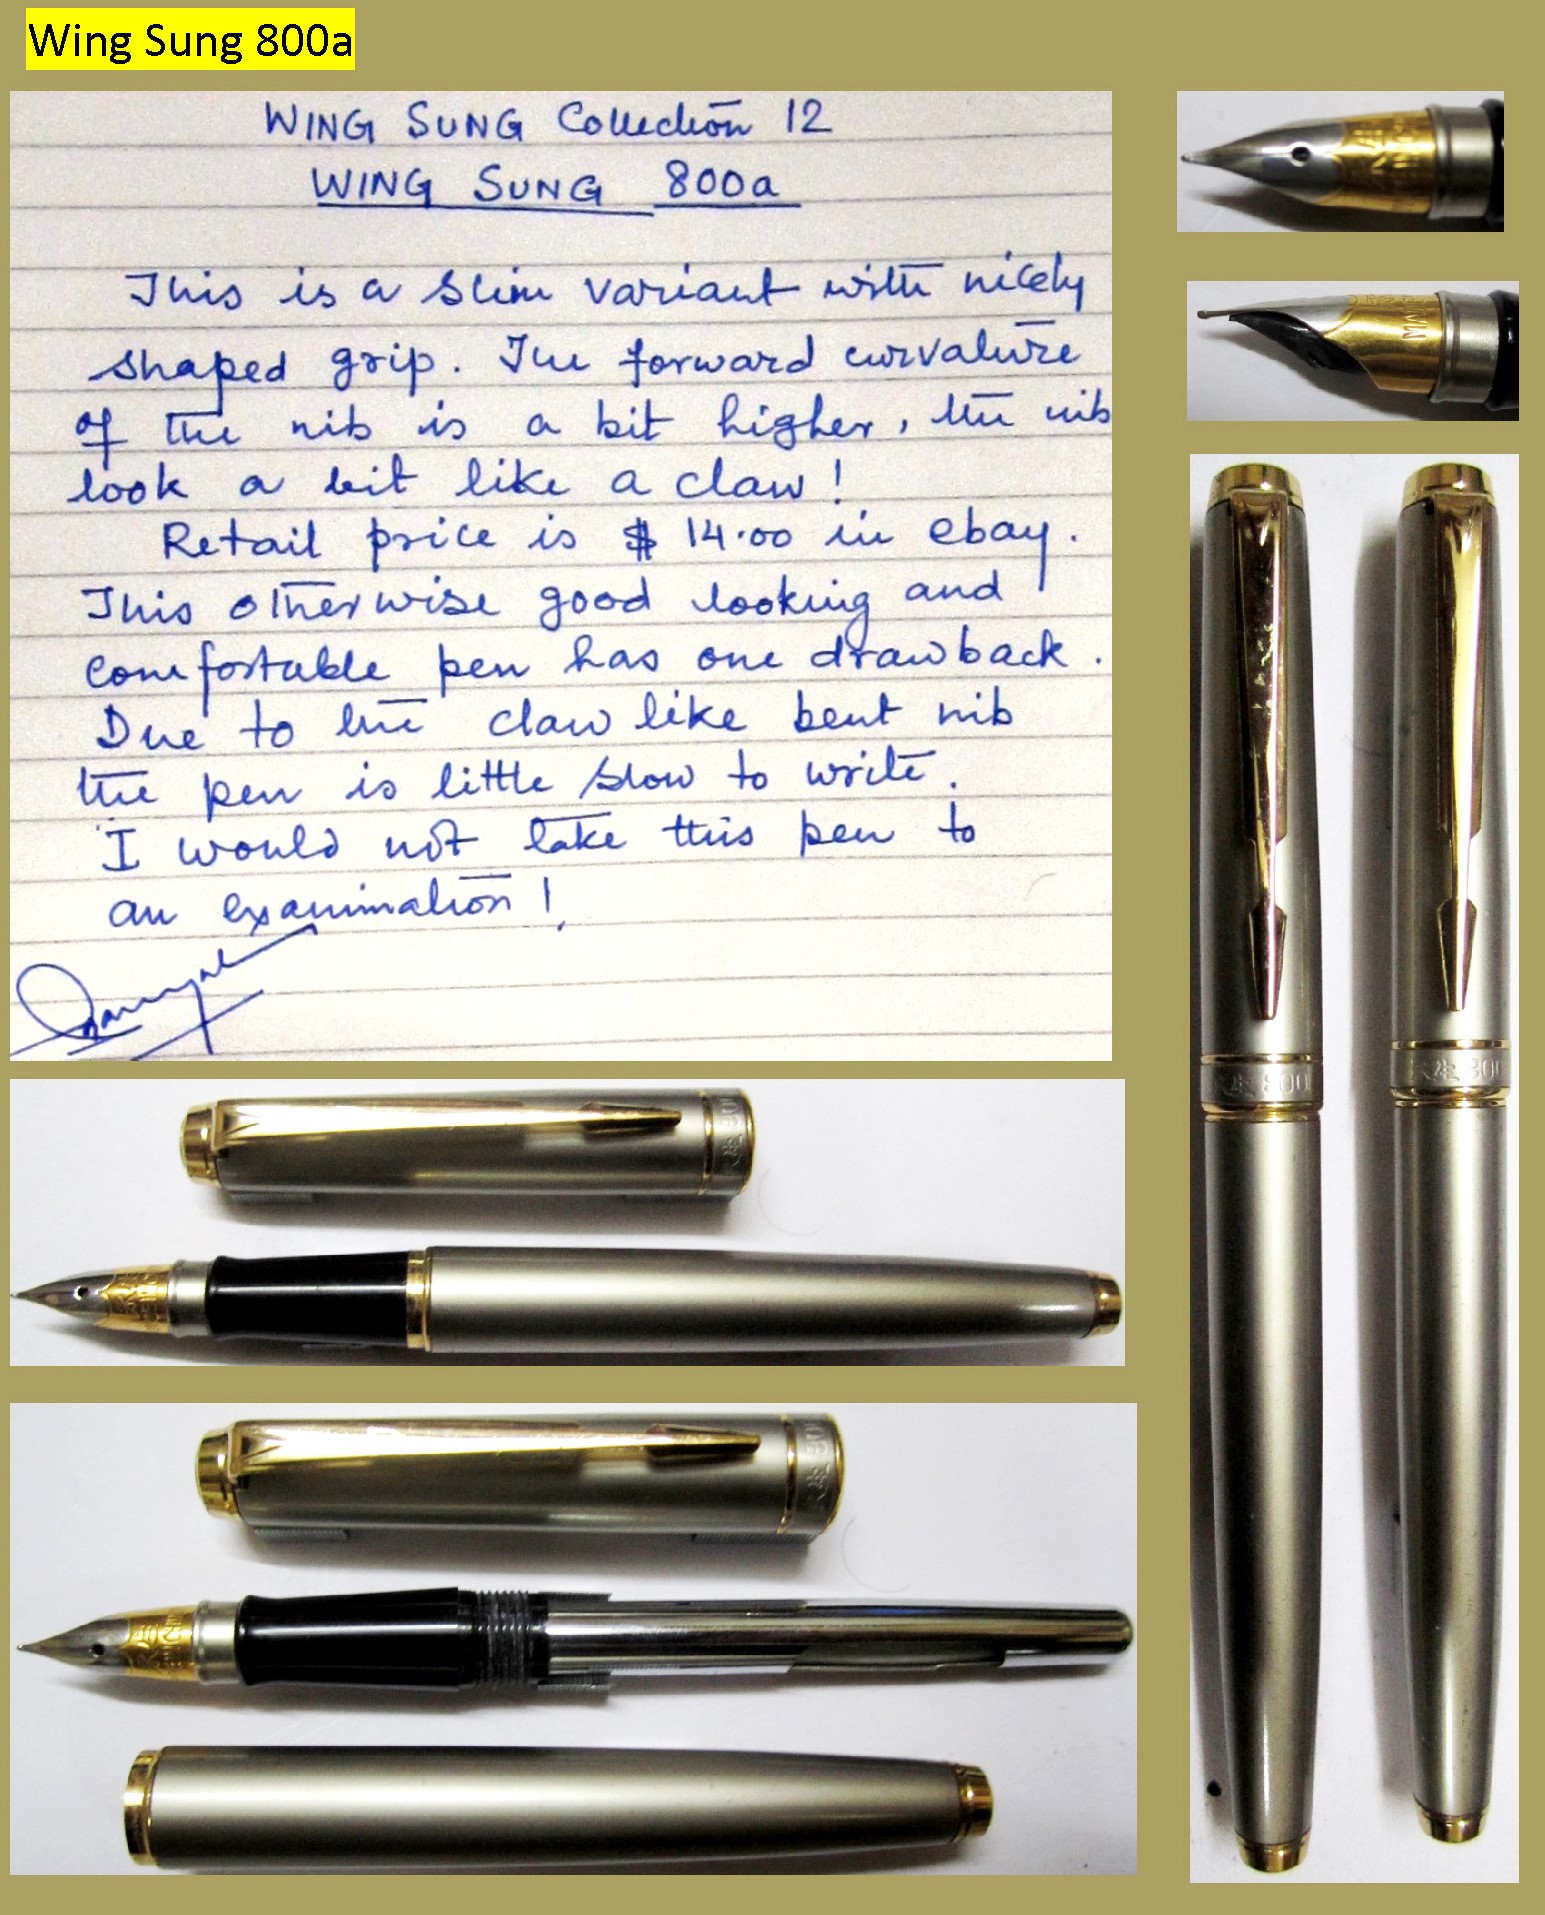 Wing Sung 800a
WING SUNG Collection 12
WING SUNG 800a
This is a slim variant with nicely
shaped grip. The forward curvature
of the nib is a bit higher, the nib
look a bit like a claw!
Retail price is $ 14.00 in ebay.
This otherwise good looking and
comfortable pen has one drawback.
Due to the claw like bent nib
the pen is little slow to write.
I would not take this pen to
an examination!
永生 800
永生 800